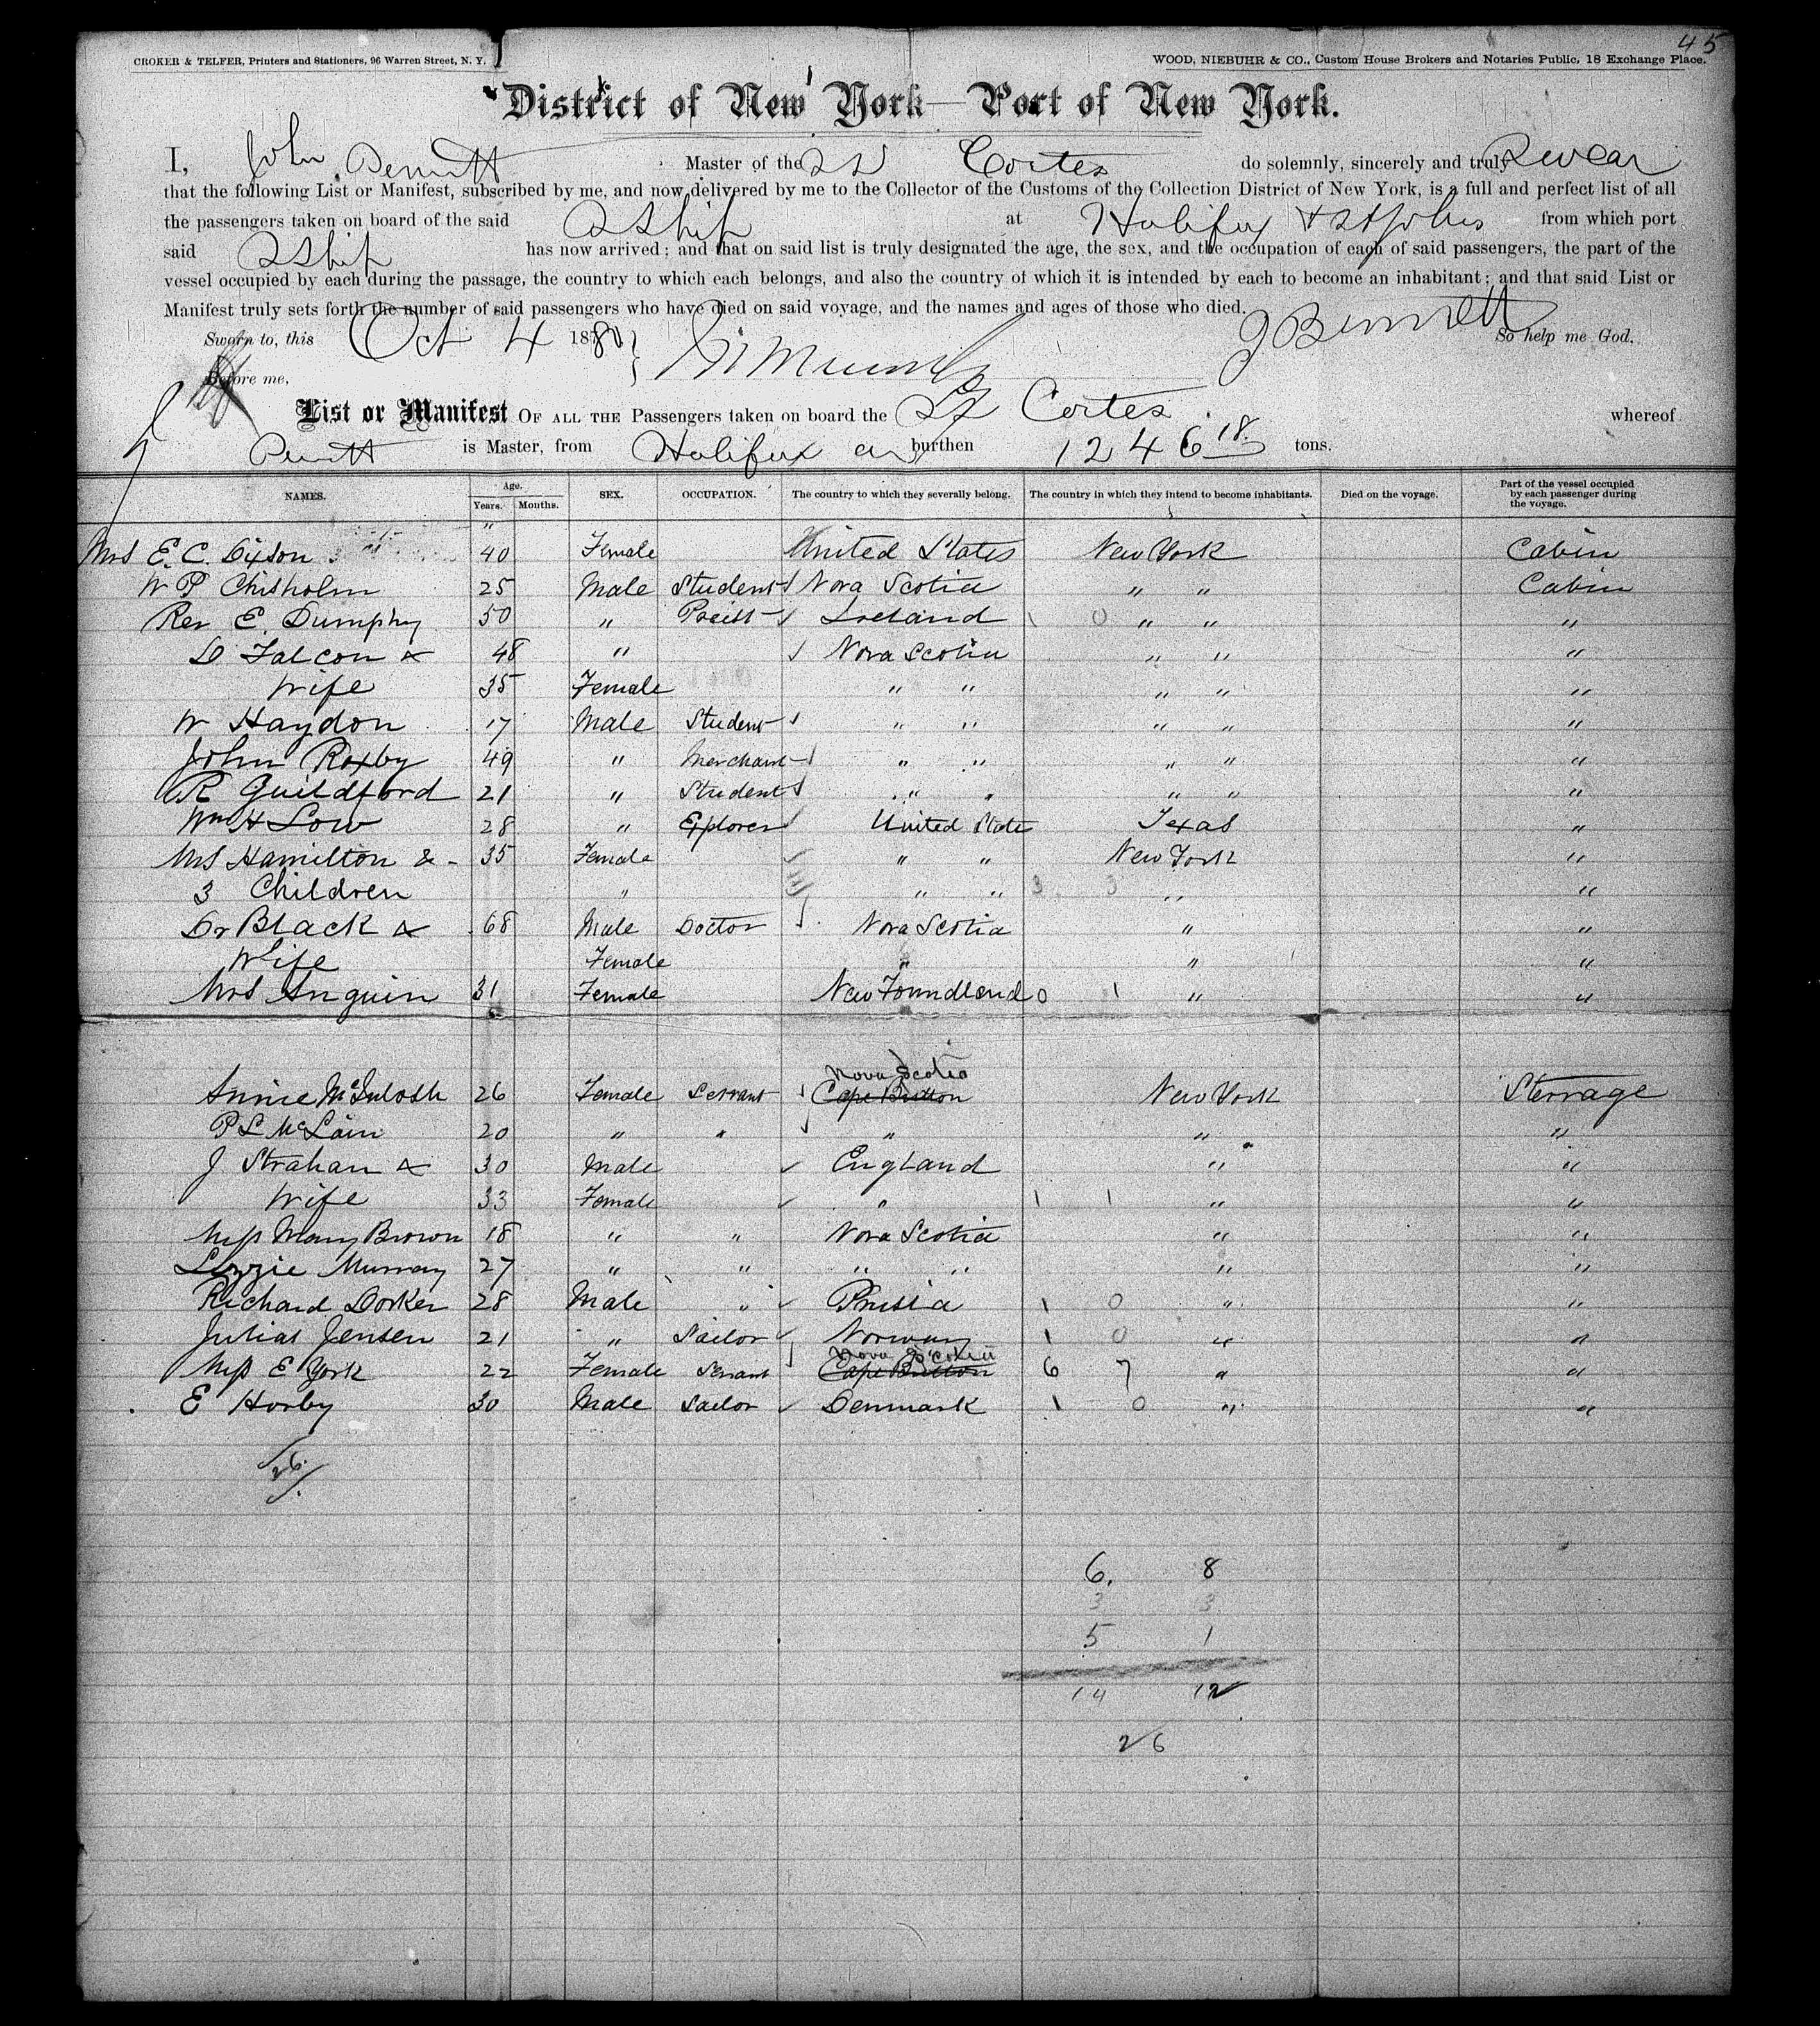 45
CROKER & TELFER, Printers and Stationers, 96 Warren Street, N. Y. WOOD, NIEBUHR & CO., Custom House Brokers and Notaries Public, 18 Exchange Place.
District of New York — Port of New York.
I, John Master of the SS Cortes do solemnly, sincerely and truly swear
that the following List or Manifest, subscribed by me, and now delivered by me to the Collector of the Customs of the Collection District of New York, is a full and perfect list of all
the passengers taken on board of the said SShip at Halifax & St Johns from which port
said SShip has now arrived; and that on said list is truly designated the age, the sex, and the occupation of each of said passengers, the part of the
vessel occupied by each during the passage, the country to which each belongs, and also the country of which it is intended by each to become an inhabitant; and that said List or
Manifest truly sets forth the number of said passengers who have died on said voyage, and the names and ages of those who died.
Sworn to, this Oct 4 1880 So help me God.
Before me,
List or Manifest OF ALL THE Passengers taken on board the SS Cortes whereof
is Master, from Halifax burthen 1246 18 tons.
NAMES. Age. Years. Months. SEX. OCCUPATION. The country to which they severally belong. The country in which they intend to become inhabitants. Died on the voyage. Part of the vessel occupied by each passenger during the voyage.
Mrs E. C. Dixson 40 Female United States New York Cabin
W P Chisholm 25 Male Student Nova Scotia " " Cabin
Rev E. Dumphy 50 " Preist Ireland 1 0 " " "
D Falcon & 48 " Nova Scotia " " "
Wife 35 Female " " " " "
W Haydon 17 Male Student " " " " "
John Roxby 49 " Merchant " " " " "
R Guildford 21 " Student " " " " "
Wm H Low 28 " Explorer United State Texas "
Mrs Hamilton & 35 Female " " New York "
3 Children " " " 3 3 " "
Dr Black & 68 Male Doctor Nova Scotia " "
Wife Female " " "
Mrs Anguin 31 Female New Foundland 0 1 " "
Nova Scotia
Annie McIntosh 26 Female Servant Cape Britton New York Sterrage
P L McLain 20 " " " " "
J Strahan & 30 Male England " "
Wife 33 Female " 1 1 " "
Miss Mary Brown 18 " " Nova Scotia " "
Lizzie Murray 27 " " " " " "
Richard Dorker 28 Male " Prusia 1 0 " "
Julias Jensen 21 " Sailor Norway 1 0 " "
Nova Scotia
Miss E York 22 Female Servant Cape Britton 6 7 " "
E Horby 30 Male Sailor Denmark 1 0 " "
26
6. 8
3 3
5 1
14 12
26